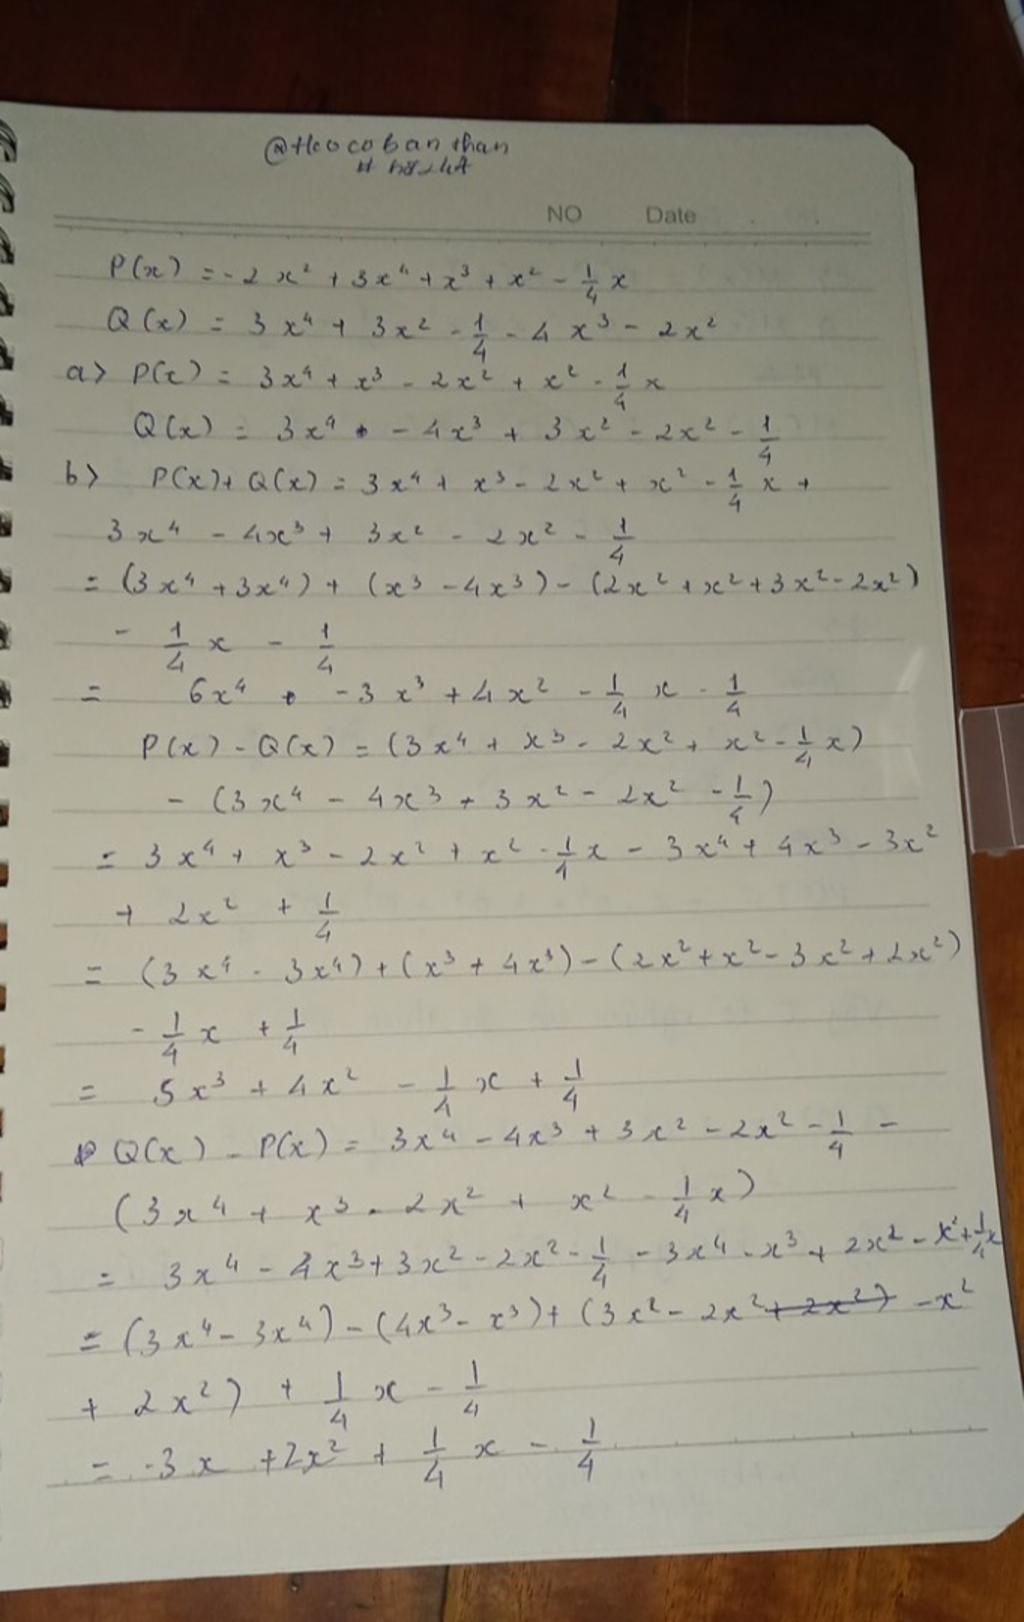 @
NO Date
P(x) = -2x² + 3x⁴ + x³ + x² - 1/4 x
Q(x) = 3x⁴ + 3x² - 1/4 - 4x³ - 2x²
a> P(x) = 3x⁴ + x³ - 2x² + x² - 1/4 x
Q(x) = 3x⁴ - 4x³ + 3x² - 2x² - 1/4
b> P(x) + Q(x) = 3x⁴ + x³ - 2x² + x² - 1/4 x +
3x⁴ - 4x³ + 3x² - 2x² - 1/4
= (3x⁴ + 3x⁴) + (x³ - 4x³) - (2x² + x² + 3x² - 2x²)
- 1/4 x - 1/4
= 6x⁴ - 3x³ + 4x² - 1/4 x - 1/4
P(x) - Q(x) = (3x⁴ + x³ - 2x² + x² - 1/4 x)
- (3x⁴ - 4x³ + 3x² - 2x² - 1/4)
= 3x⁴ + x³ - 2x² + x² - 1/4 x - 3x⁴ + 4x³ - 3x²
+ 2x² + 1/4
= (3x⁴ - 3x⁴) + (x³ + 4x³) - (2x² + x² - 3x² + 2x²)
- 1/4 x + 1/4
= 5x³ + 4x² - 1/4 x + 1/4
Q(x) - P(x) = 3x⁴ - 4x³ + 3x² - 2x² - 1/4 -
(3x⁴ + x³ - 2x² + x² - 1/4 x)
= 3x⁴ - 4x³ + 3x² - 2x² - 1/4 - 3x⁴ - x³ + 2x² - x² + 1/4 x
= (3x⁴ - 3x⁴) - (4x³ - x³) + (3x² - 2x² + 2x²) - x²
+ 2x²) + 1/4 x - 1/4
= -3x + 2x² + 1/4 x - 1/4